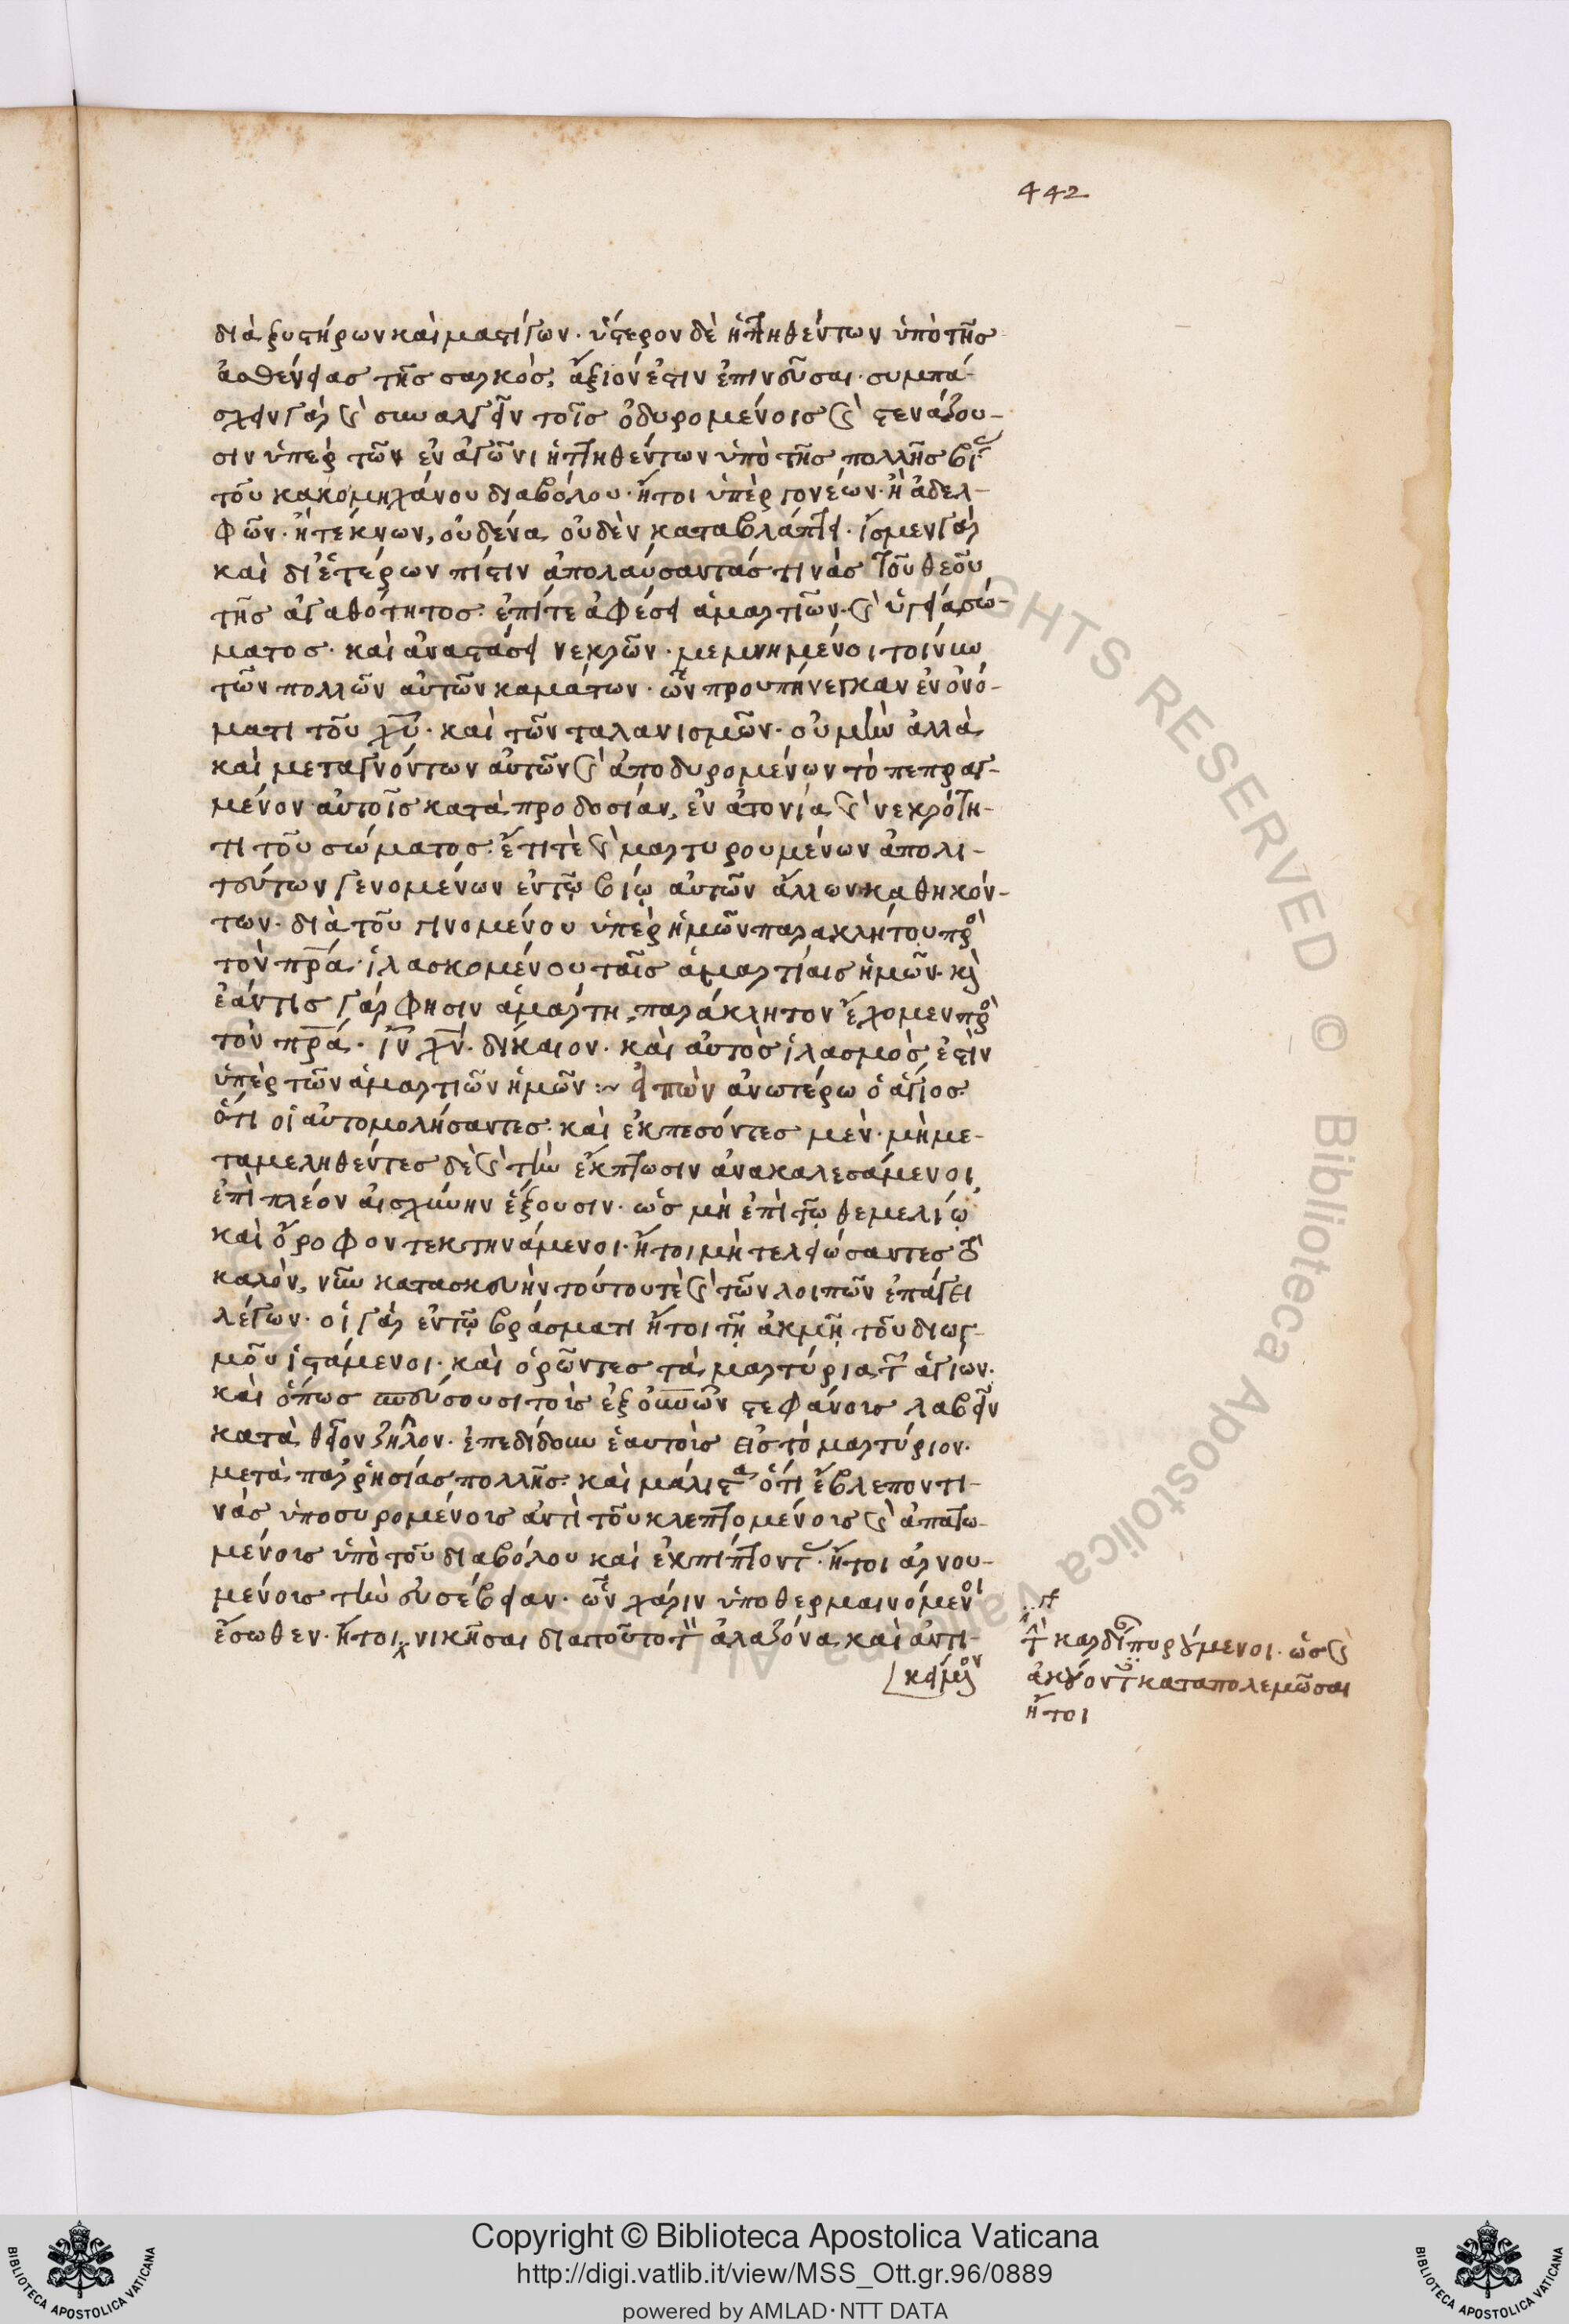 442
διὰ ξυστήρων καὶ μαστίγων· ὕστερον δὲ ἡττηθέντων ὑπὸ τῆς
ἀσθένειας τῆς σαρκὸς, ἄξιόν ἐστιν ἐπινεῦσαι· συμπά-
σχειν γὰρ καὶ συναλγεῖν τοῖς ὀδυρομένοις καὶ στενάζου-
σιν ὑπὲρ τῶν ἐν ἀγῶνι ἡττηθέντων ὑπὸ τῆς πολλῆς βίας
τοῦ κακομηχάνου διαβόλου· ἤτοι ὑπὲρ γονέων· ἢ ἀδελ-
φῶν· ἢ τέκνων, οὐδένα οὐδὲν καταβλάπτει· ἴσμεν γὰρ
καὶ δι' ἑτέρων πίστιν ἀπολαύσαντάς τινὰς τοῦ θεοῦ
τῆς ἀγαθότητος· ἐπίτε ἀφέσει ἁμαρτιῶν· καὶ ὑγείᾳ σώ-
ματος· καὶ ἀναστάσει νεκρῶν· μεμνημένοι τοίνυν
τῶν πολλῶν αὐτῶν καμάτων· ὧν προυπήνεγκαν ἐν ὀνό-
ματι τοῦ χυ· καὶ τῶν ταλανισμῶν· οὐ μὴν ἀλλὰ
καὶ μεταγνόντων αὐτῶν καὶ ἀποδυρομένων τὸ πεπραγ-
μένον αὐτοῖς κατὰ προδοσίαν, ἐν ἀτονίᾳ καὶ νεκρότη-
τι τοῦ σώματος· ἔτι τὲ καὶ μαρτυρουμένων ἀπολι-
τούτων γενομένων ἐν τῷ βίῳ αὐτῶν ἄλλων καθηκόν-
των· διὰ τοῦ γινομένου ὑπὲρ ἡμῶν παρακλήτου πρὸς
τὸν πρα· ἱλασκομένου ταῖς ἁμαρτίαις ἡμῶν· καὶ
ἐάν τις γὰρ φησιν ἁμάρτη, παράκλητον ἔχομεν πρὸς
τὸν πρα· ιν χν· δίκαιον· καὶ αὐτὸς ἱλασμός ἐστιν
ὑπὲρ τῶν ἁμαρτιῶν ἡμῶν :~ εἰπὼν ἀνωτέρω ὁ ἅγιος·
ὅτι οἱ αὐτομολήσαντες· καὶ ἐκπεσόντες μὲν· μὴ με-
ταμεληθέντες δὲ καὶ τὴν ἔκπτωσιν ἀνακαλεσάμενοι,
ἐπὶ πλέον αἰσχύνην ἕξουσιν· ὡς μὴ ἐπὶ τῷ θεμελίῳ
καὶ ὄροφον τεκτηνάμενοι· ἤτοι μὴ τελειώσαντες τὸ
καλὸν, νῦν κατασκευὴν τούτου τὲ καὶ τῶν λοιπῶν ἐπάγει
λέγων· οἱ γὰρ ἐν τῷ βράσματι ἤτοι τῇ ἀκμῇ τοῦ διωγ-
μοῦ ἱστάμενοι· καὶ ὁρῶντες τὰ μαρτύρια τῶν ἁγίων·
καὶ ὅπως σπεύδουσι τοὺς ἐξ οὐνῶν στεφάνους λαβεῖν
κατὰ θεῖον ζῆλον· ἐπεδίδουν ἑαυτοὺς εἰς τὸ μαρτύριον·
μετὰ παρρησίας πολλῆς· καὶ μάλιστα ὅτι ἔβλεπον τι-
νὰς ὑποσυρομένους ἀντὶ τοῦ κλεπτομένους καὶ ἀπατω-
μένους ὑπὸ τοῦ διαβόλου καὶ ἐκπίπτοντας· ἤτοι ἀρνου-
μένους τὴν εὐσέβειαν· ὧν χάριν ὑποθερμαινόμενοι
ἔσωθεν· ἤτοι νικῆσαι διαπαντὸς τὸν ἀλαζόνα καὶ ἀντι-
κείμενον
τὴν καρδίαν πυρούμενοι· ὡς καὶ
ἀκούοντες καταπολεμῶσαι
ἤτοι
Copyright © Biblioteca Apostolica Vaticana
http://digi.vatlib.it/view/MSS_Ott.gr.96/0889
powered by AMLAD·NTT DATA